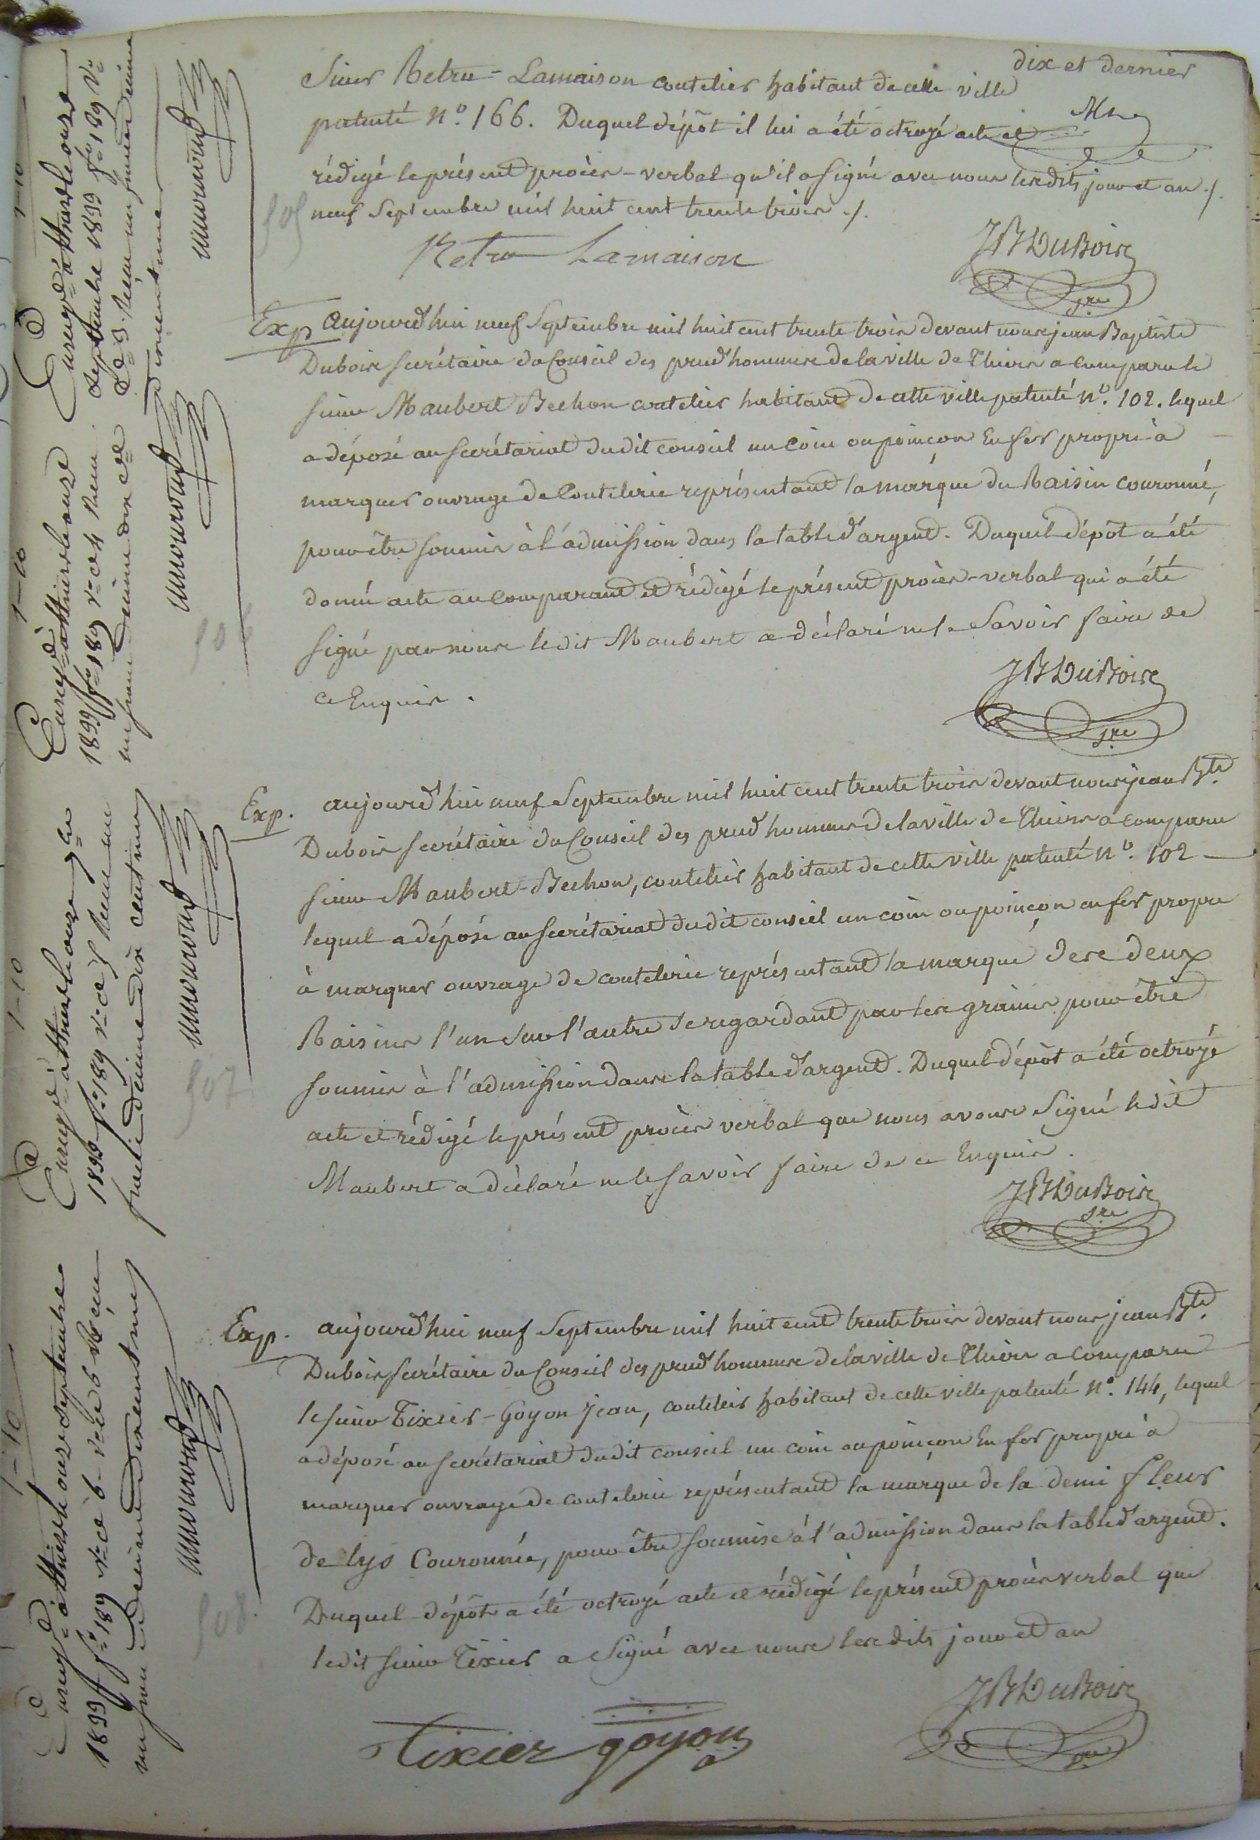 dix et dernier
Sieur Retru-Lamaison coutelier habitant de cette ville
patenté N.o 166. Duquel dépôt il lui a été octroyé acte et
rédigé le présent procès-verbal qu'il a signé avec nous lesdits jour et an ./.
neuf Septembre mil huit cent trente trois ./.
505
Retru Lamaison
JB DuBois
sre
Exp. aujourd'hui neuf Septembre mil huit cent trente trois devant nous jean Baptiste
Dubois secrétaire du Conseil des prud'hommes de la ville de Thiers a comparu le
sieur Maubert Bechon coutelier habitant de cette ville patenté N.o 102. lequel
a déposé au secrétariat dudit conseil un coin ou poinçon en fer propre à
marquer ouvrage de coutelerie représentant la marque du Raisin couronné,
pour être soumis à l'admission dans la table d'argent. Duquel dépôt a été
donné acte au comparant et rédigé le présent procès-verbal qui a été
signé par nous ledit Maubert a déclaré ne le savoir faire de
ce Enquis.
506
JB DuBois
sre
Exp. aujourd'hui neuf Septembre mil huit cent trente trois devant nous jean Bte
Dubois secrétaire du Conseil des prud'hommes de la ville de Thiers a comparu
sieur Maubert-Bechon, coutelier habitant de cette ville patenté N.o 102
lequel a déposé au secrétariat dudit conseil un coin ou poinçon en fer propre
à marquer ouvrage de coutelerie représentant la marque des deux
Raisins l'un sur l'autre se regardant par les graines pour être
soumis à l'admission dans la table d'argent. Duquel dépôt a été octroyé
acte et rédigé le présent procès verbal que nous avons signé ledit
Maubert a déclaré ne le savoir faire de ce Enquis.
507
JB DuBois
sre
Exp. aujourd'hui neuf Septembre mil huit cent trente trois devant nous jean Bte
Dubois secrétaire du Conseil des prud'hommes de la ville de Thiers a comparu
le sieur Tixier-Goyon Jean, coutelier habitant de cette ville patenté N.o 144, lequel
a déposé au secrétariat dudit conseil un coin ou poinçon En fer propre à
marquer ouvrage de coutelerie représentant la marque de la demi fleur
de lys Couronnée, pour être soumise à l'admission dans la table d'argent.
Duquel dépôt a été octroyé acte et rédigé le présent procès verbal que
ledit sieur Tixier a signé avec nous lesdits jour et an
508.
JB DuBois
sre
Tixier goyon
1-10
Enregé à thiers le onze
septembre 1833 fo 189 Vo
1-10
Enregé à thiers le onze
1833 fo 189 vo
un franc décime dix ce
1-10
Enregé à thiers le onze 7bre
1833 fo 189 vo
franc décime dix centimes
1-10
Enregé à thiers le onze septembre
1833 fo 189 vo
un franc décime dix centimes